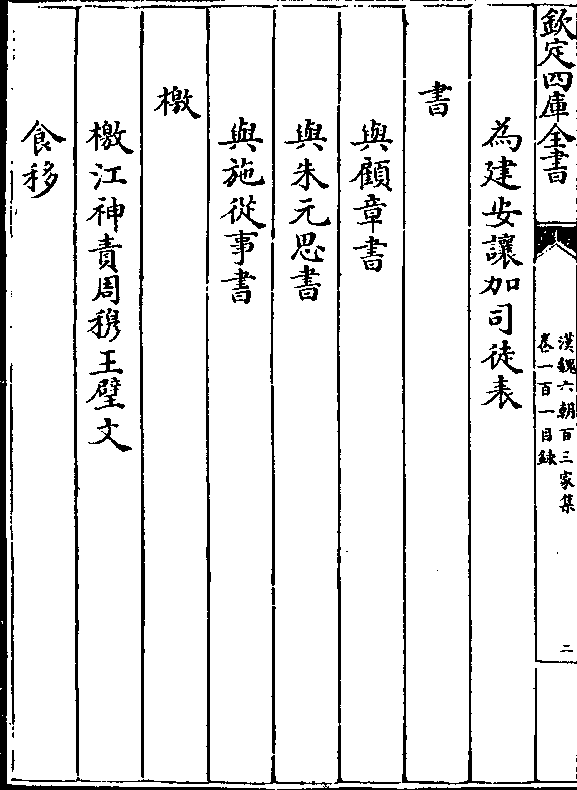 欽定四庫全書
漢魏六朝百三家集
卷一百一目録
二
為建安讓加司徒表
書
與顧章書
與朱元思書
與施從事書
檄
檄江神責周穆王璧文
食移